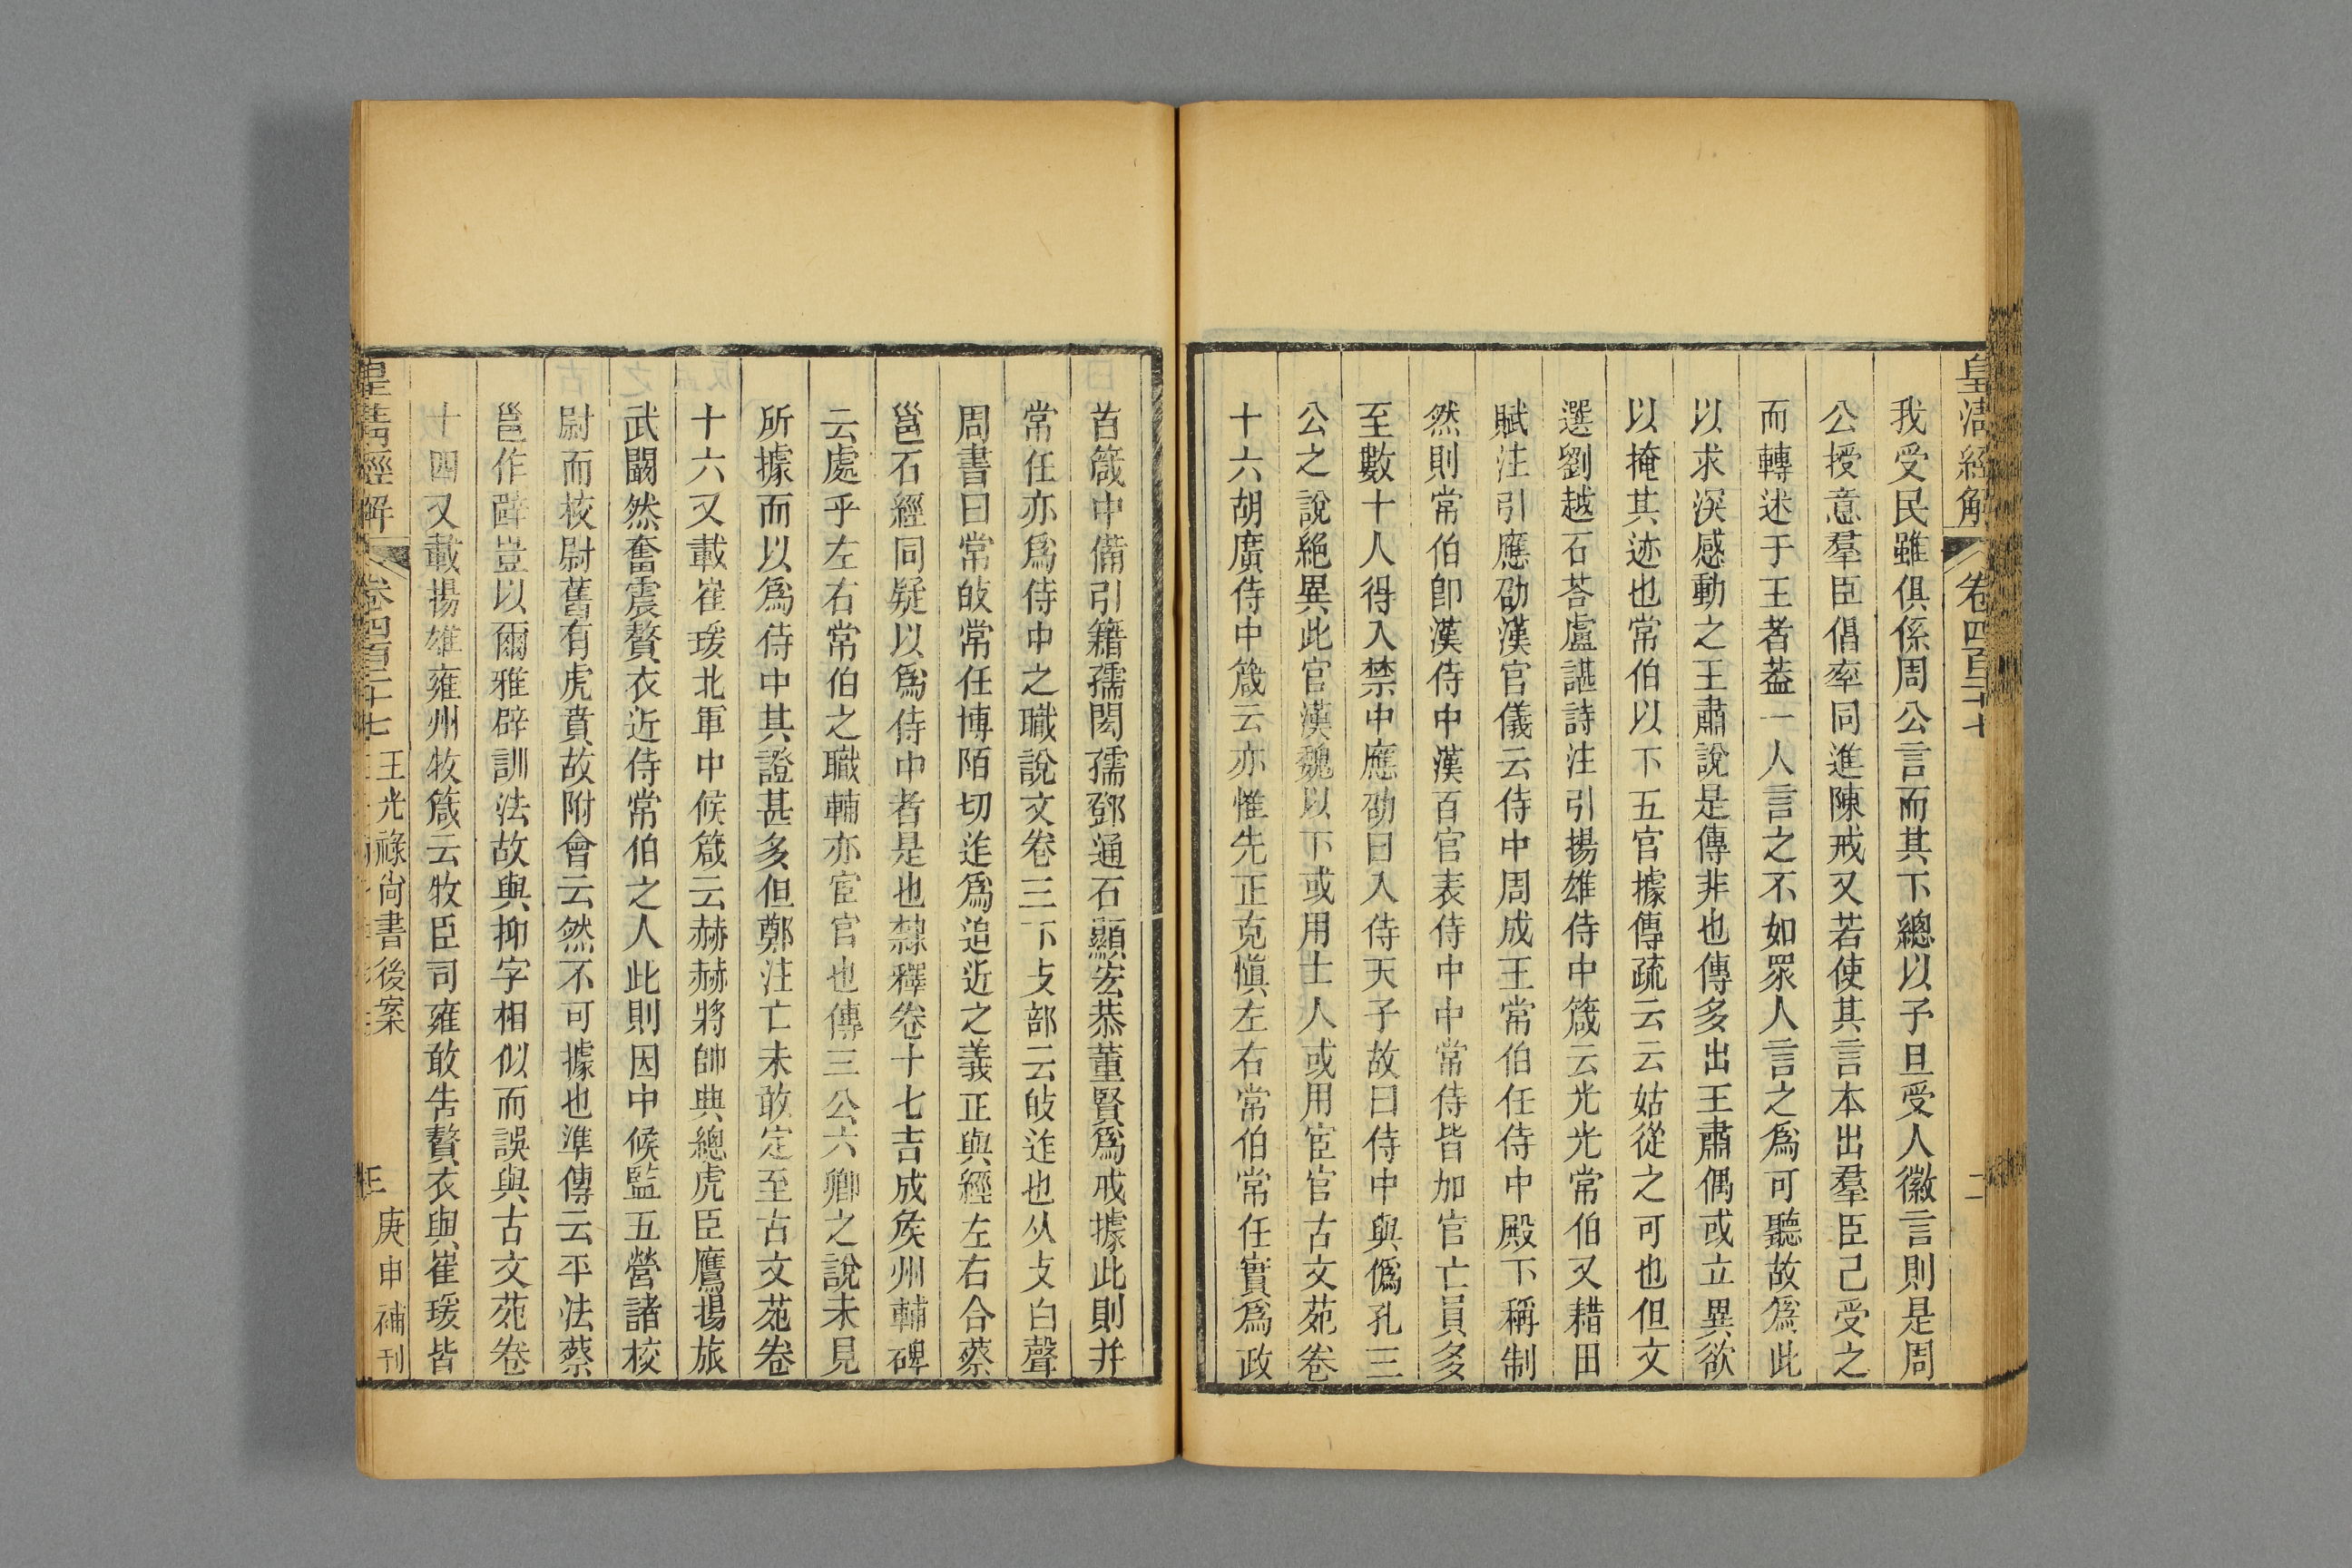 皇清經解 卷四百二十七 二
我受民雖俱係周公言而其下總以予旦受人徽言則是周
公授意羣臣倡率同進陳戒又若使其言本出羣臣己受之
而轉述于王者葢一人言之不如眾人言之爲可聽故爲此
以求深感動之王肅說是傳非也傳多出王肅偶或立異欲
以掩其迹也常伯以下五官據傳疏云云姑從之可也但文
選劉越石荅盧諶詩注引揚雄侍中箴云光光常伯又耤田
賦注引應劭漢官儀云侍中周成王常伯任侍中殿下稱制
然則常伯卽漢侍中漢百官表侍中中常侍皆加官亡員多
至數十人得入禁中應劭曰入侍天子故曰侍中與僞孔三
公之說絕異此官漢魏以下或用士人或用宦官古文苑卷
十六胡廣侍中箴云亦惟先正克愼左右常伯常任實爲政
首箴中備引籍孺閎孺鄧通石顯宏恭董賢爲戒據此則幷
常任亦爲侍中之職說文卷三下攴部云敀迮也从攴白聲
周書曰常敀常任博陌切迮爲迫近之義正與經左右合蔡
邕石經同疑以爲侍中者是也隸釋卷十七吉成矦州輔碑
云處乎左右常伯之職輔亦宦官也傳三公六卿之說未見
所據而以爲侍中其證甚多但鄭注亡未敢定至古文苑卷
十六又載崔瑗北軍中候箴云赫赫將帥典總虎臣鷹揚旅
武闞然奮震贅衣近侍常伯之人此則因中候監五營諸校
尉而校尉舊有虎賁故附會云然不可據也準傳云平法蔡
邕作辟豈以爾雅辟訓法故與抑字相似而誤與古文苑卷
十四又載揚雄雍州牧箴云牧臣司雍敢告贅衣與崔瑗皆
皇清經解 卷四百二十七 王光祿尚書後案 三 庚申補刊